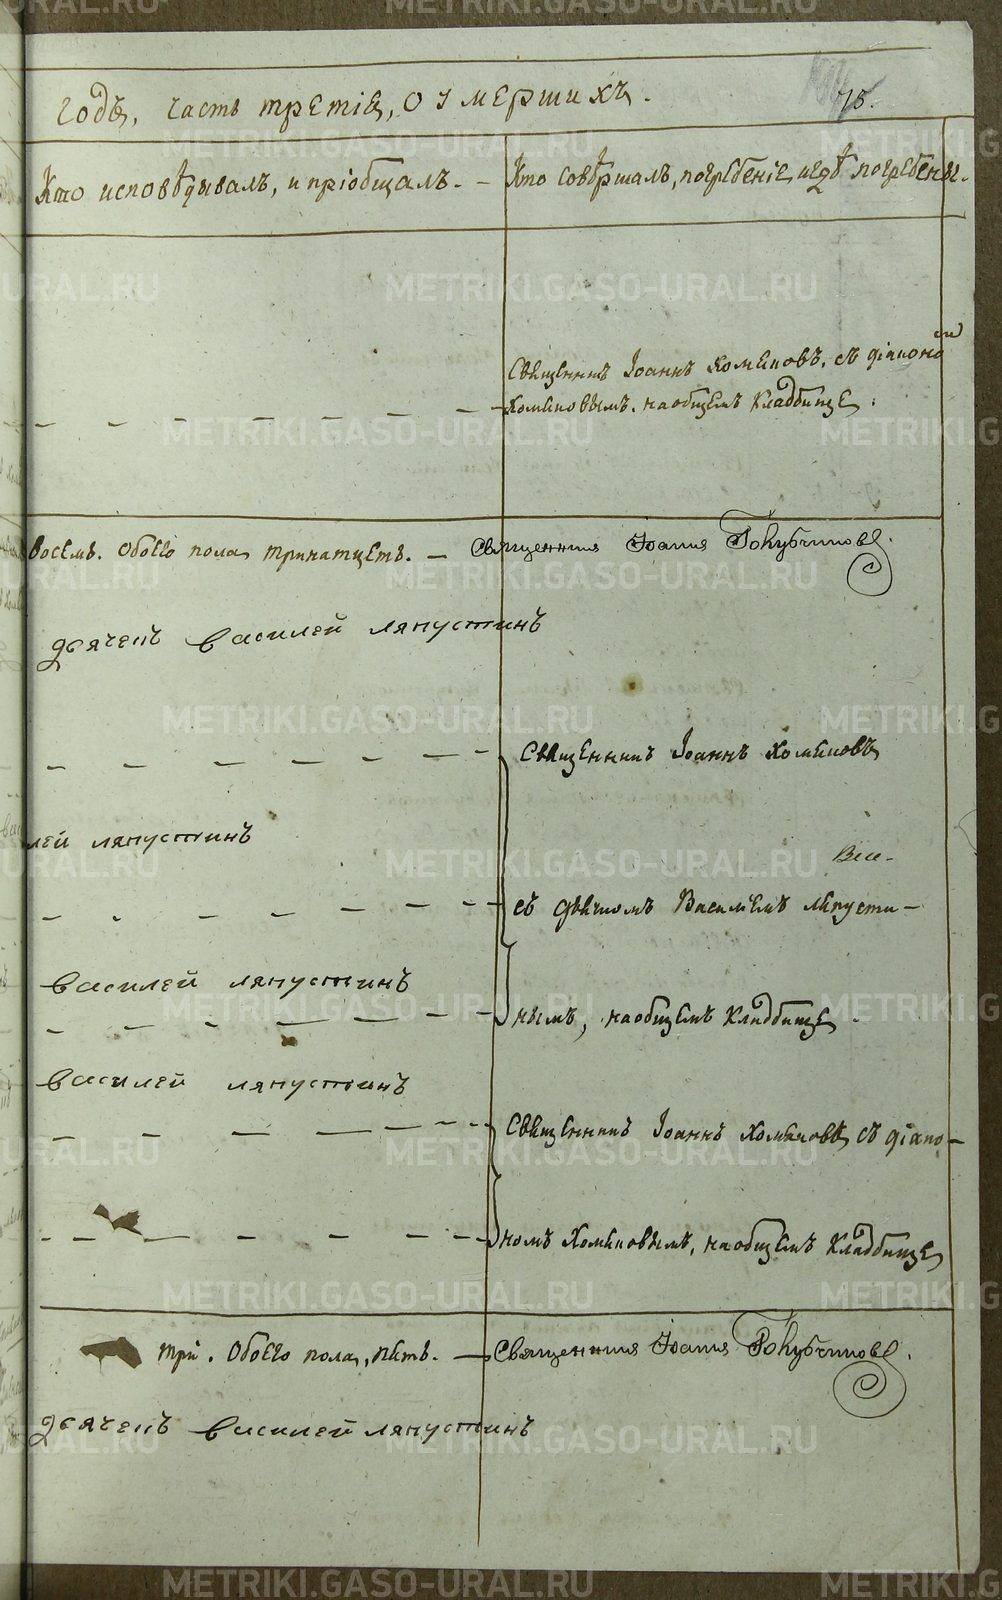 75.
годѣ, часть третія, о умершихъ.
Кто исповѣдывалъ, и пріобщалъ. – Кто совершалъ, погребеніе, и гдѣ погребены.
Священникъ Іоаннъ Хомяковъ, съ діакономъ
Хомяковымъ. на общемъ кладбище.
восемь. Обоего пола, тринатцеть. – Священникъ Іоаннъ
дьячекъ василей ляпустинъ
Священникъ Іоаннъ Хомяковъ
лей ляпустинъ
Все-
съ дьячкомъ Васильемъ ляпусти-
василей ляпустинъ
нымъ, на общемъ кладбище.
василей ляпустинъ
Священникъ Іоаннъ Хомяковъ, съ діако-
номъ Хомяковымъ, на общемъ кладбище
три. Обоего пола, пять. – Священникъ Іоаннъ
дьячекъ василей ляпустинъ
METRIKI.GASO-URAL.RU